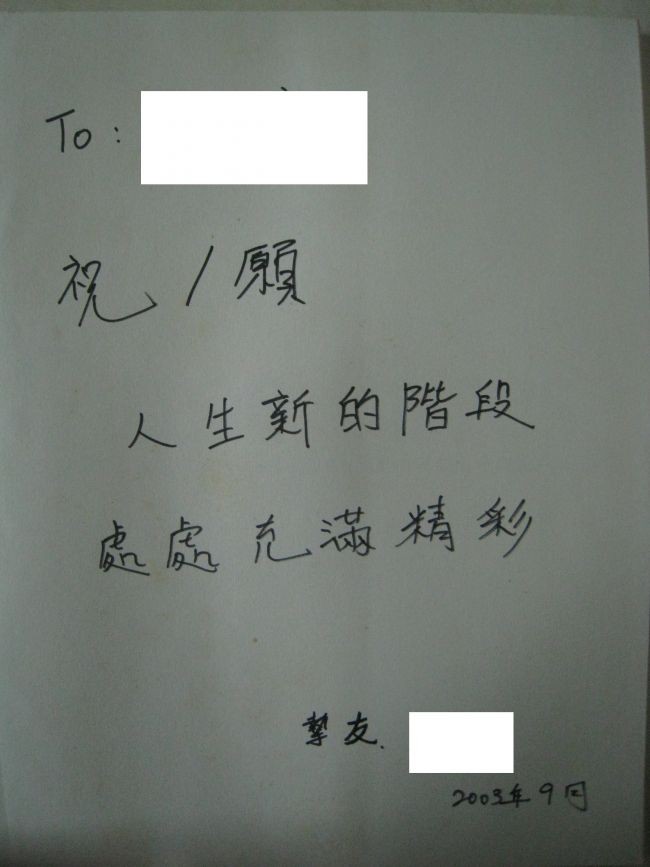 To:
祝/願
人生新的階段
處處充滿精彩
摯友.
2003年9月